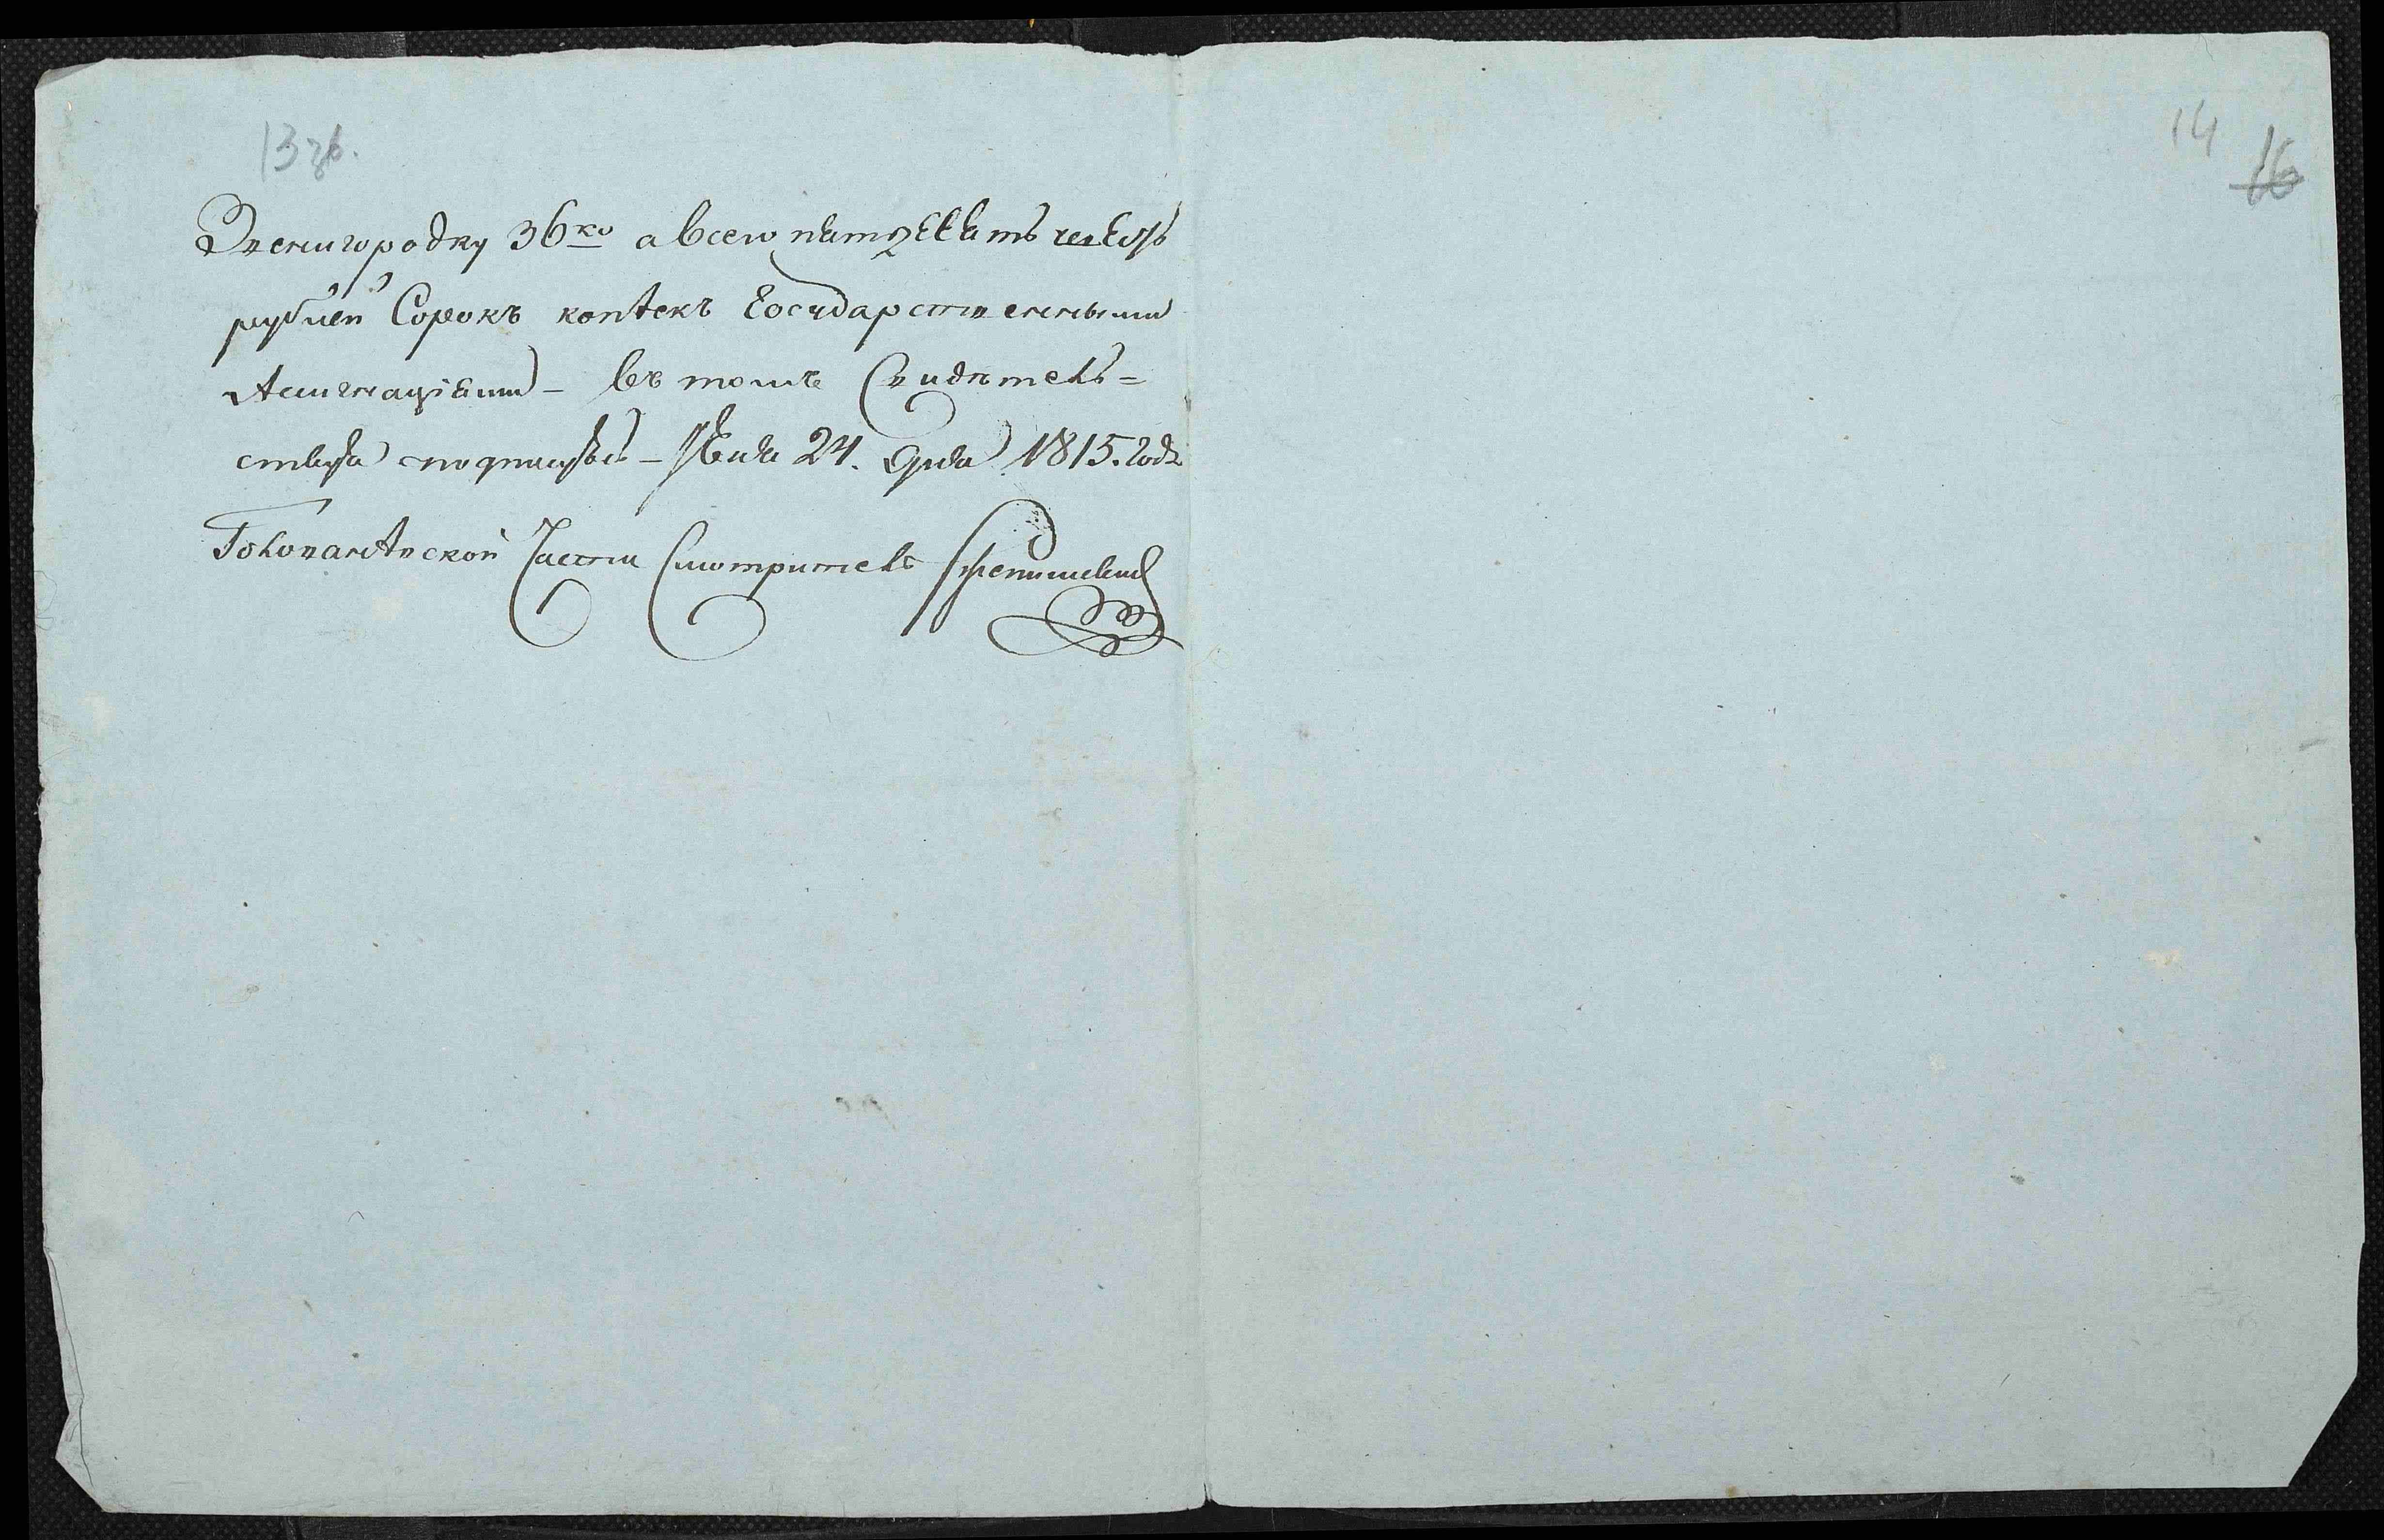 13 зв.
14
16
Звенигородку 36ко а всего пятдесятъ
рублей Сорокъ копѣекъ Государственными
Ассигнаціями – въ томъ Свидѣтель=
ствуя подписуюсь – 24. дня 1815. года
Голованѣвской Части Смотритель